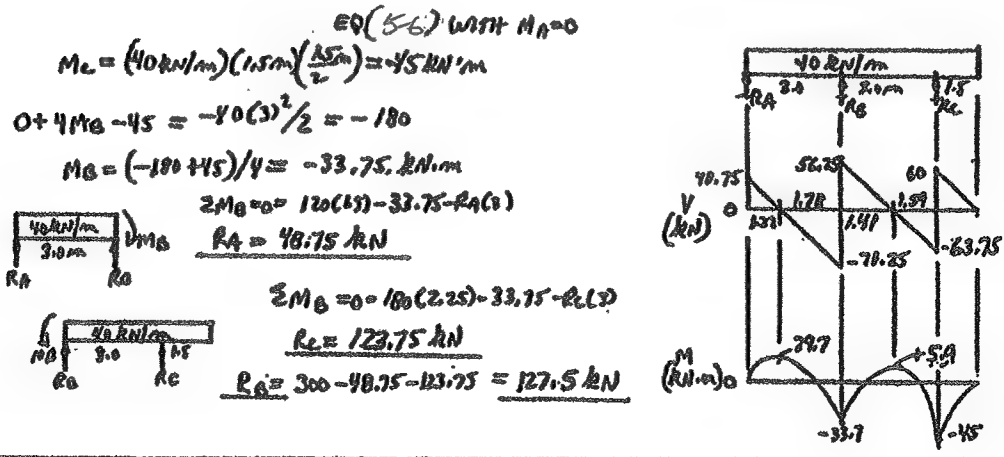 EQ(5-6) WITH MA=0
Mc = (40 kN/m)(1.5m)(1.5m/2) = -45 kN·m
0+4MB-45 = -40(3)²/2 = -180
MB = (-180+45)/4 = -33.75 kN·m
ΣMB=0= 120(1.5)-33.75-RA(3)
RA = 48.75 kN
40kN/m
MB
3.0m
RA
RB
ΣMB=0=180(2.25)-33.75-RC(3)
RC = 123.75 kN
RB = 300-48.75-123.75 = 127.5 kN
MB
40 kN/m
3.0
1.5
RB
RC
40 kN/m
3.0
3.0m
1.5
RA
RB
RC
48.75
56.25
60
V
(kN)
0
1.78
1.41
1.59
-71.25
-63.75
M
(kN·m)
0
29.7
+5.9
-33.7
-45